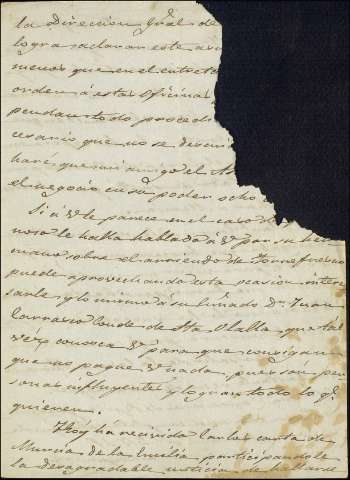 la Dirección Gral. de
logra aclarar este as
menos que en el entreto
orden á estas Oficinas
pendan todo procedi
cesario que no se descui
haré que mi amigo el A
el negocio en su poder ocho
Si á V. le parece en el caso de q.
noso le halla hablado á V. por su her
mano sobre el arriendo de Torrefresneo
puede aprovechando esta ocasion intere
sarle, y lo mismo á su linado Dn. Juan
Carrasco Conde de Sta. Olalla, que tal
vez conozca V. para que consigan
que no pague V. nada, pues son per
sonas influyentes y logran todo lo q.
quieren.
Hoy há recivido Carlos carta de
Murcia de la Emilia participandole
la desagradable noticia de hallarse